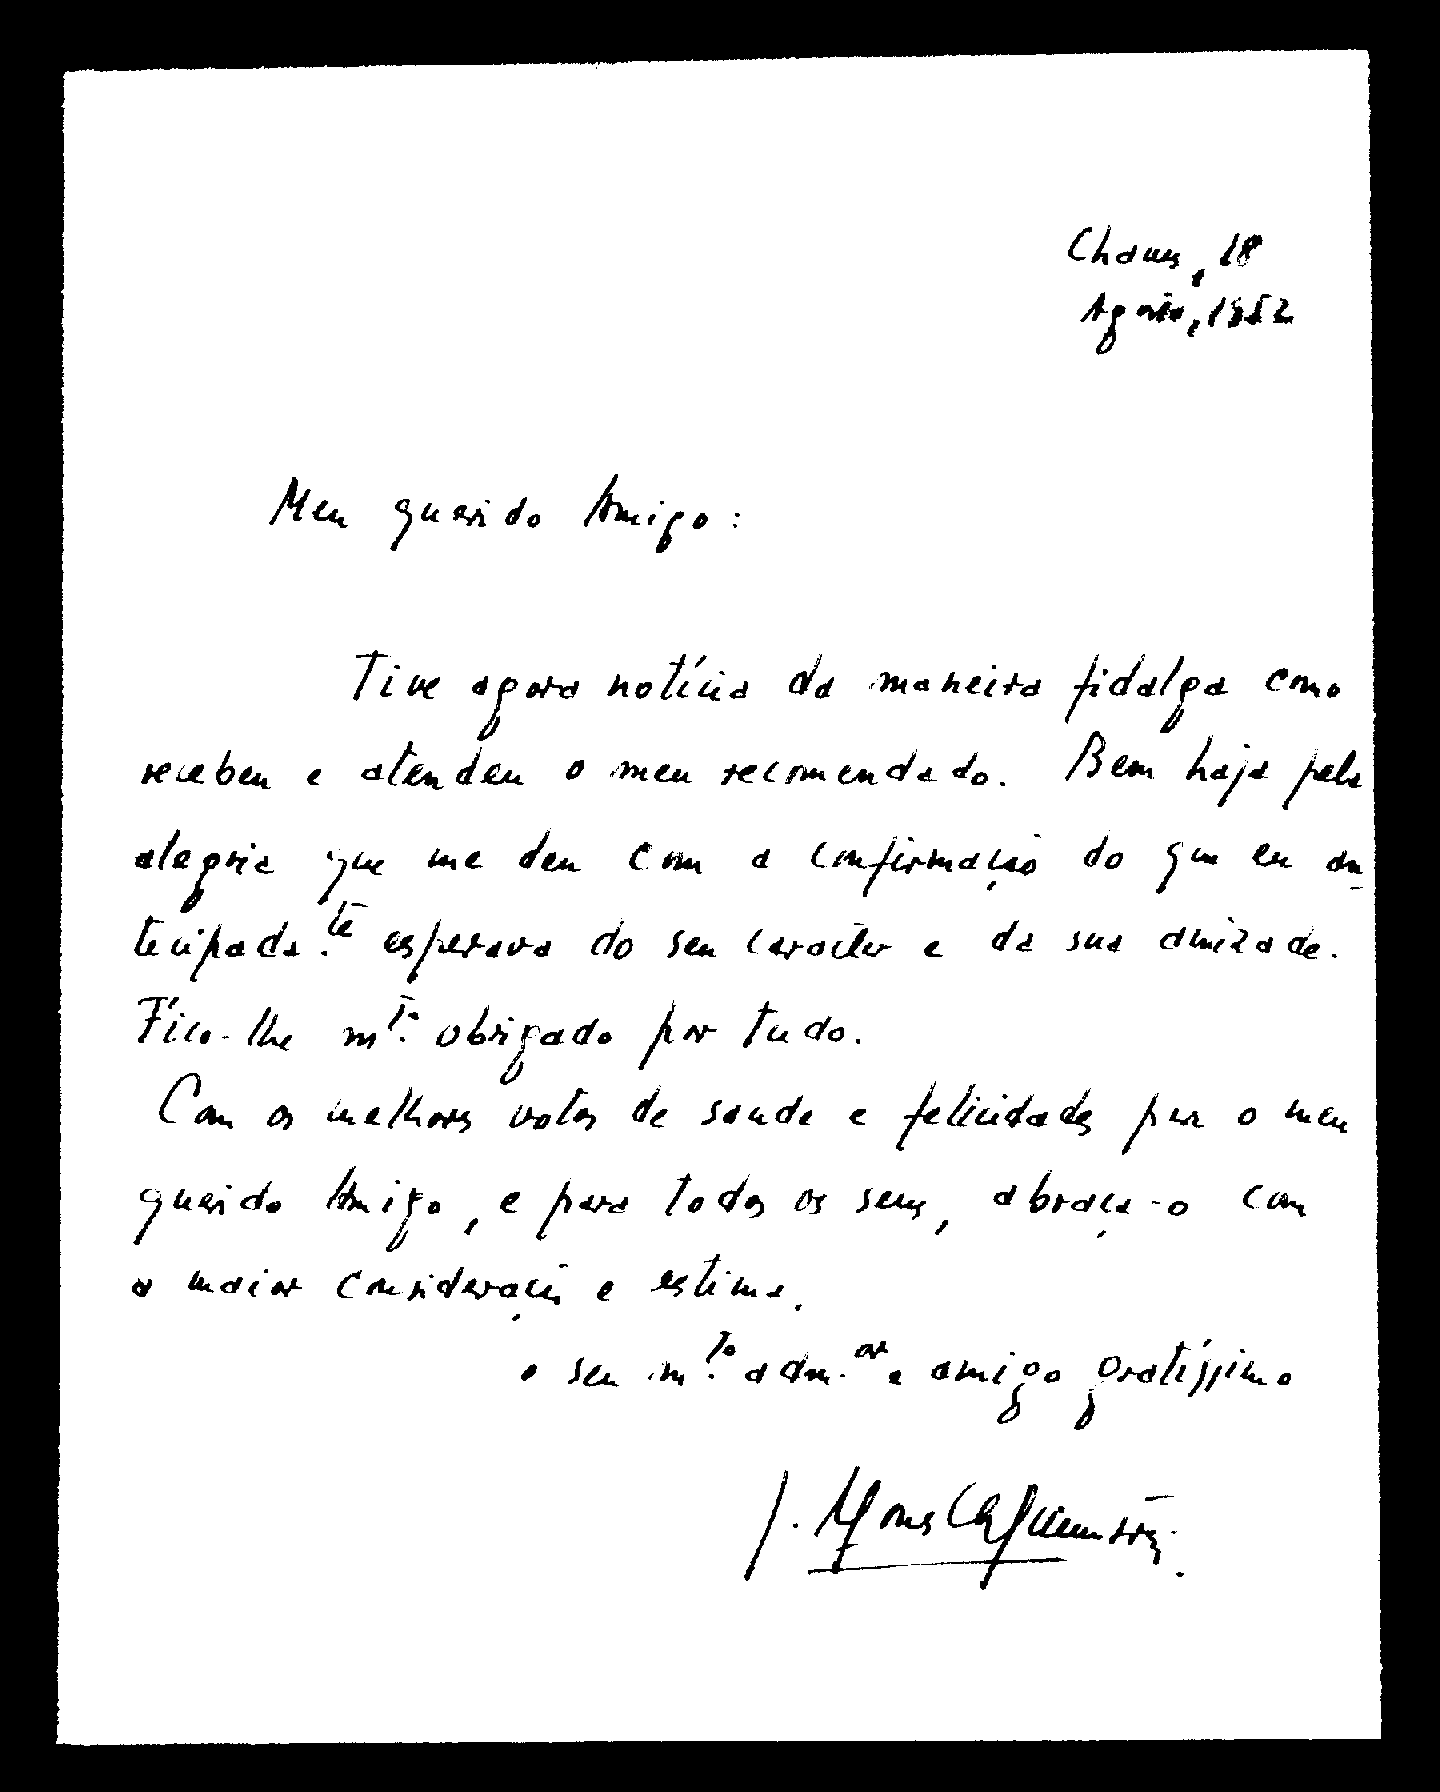 Chaves, 18
Agosto, 1952
Meu querido Amigo:
Tive agora notícia da maneira fidalga como
recebeu e atendeu o meu recomendado. Bem haja pela
alegria que me deu com a confirmação do que eu an-
tecipada.te esperava do seu carácter e da sua amizade.
Fico-lhe mto. obrigado por tudo.
Com os melhores votos de saude e felicidades para o meu
querido Amigo, e para todos os seus, abraça-o com
a maior consideração e estima,
o seu m.to adm.or e amigo gratíssimo
J.